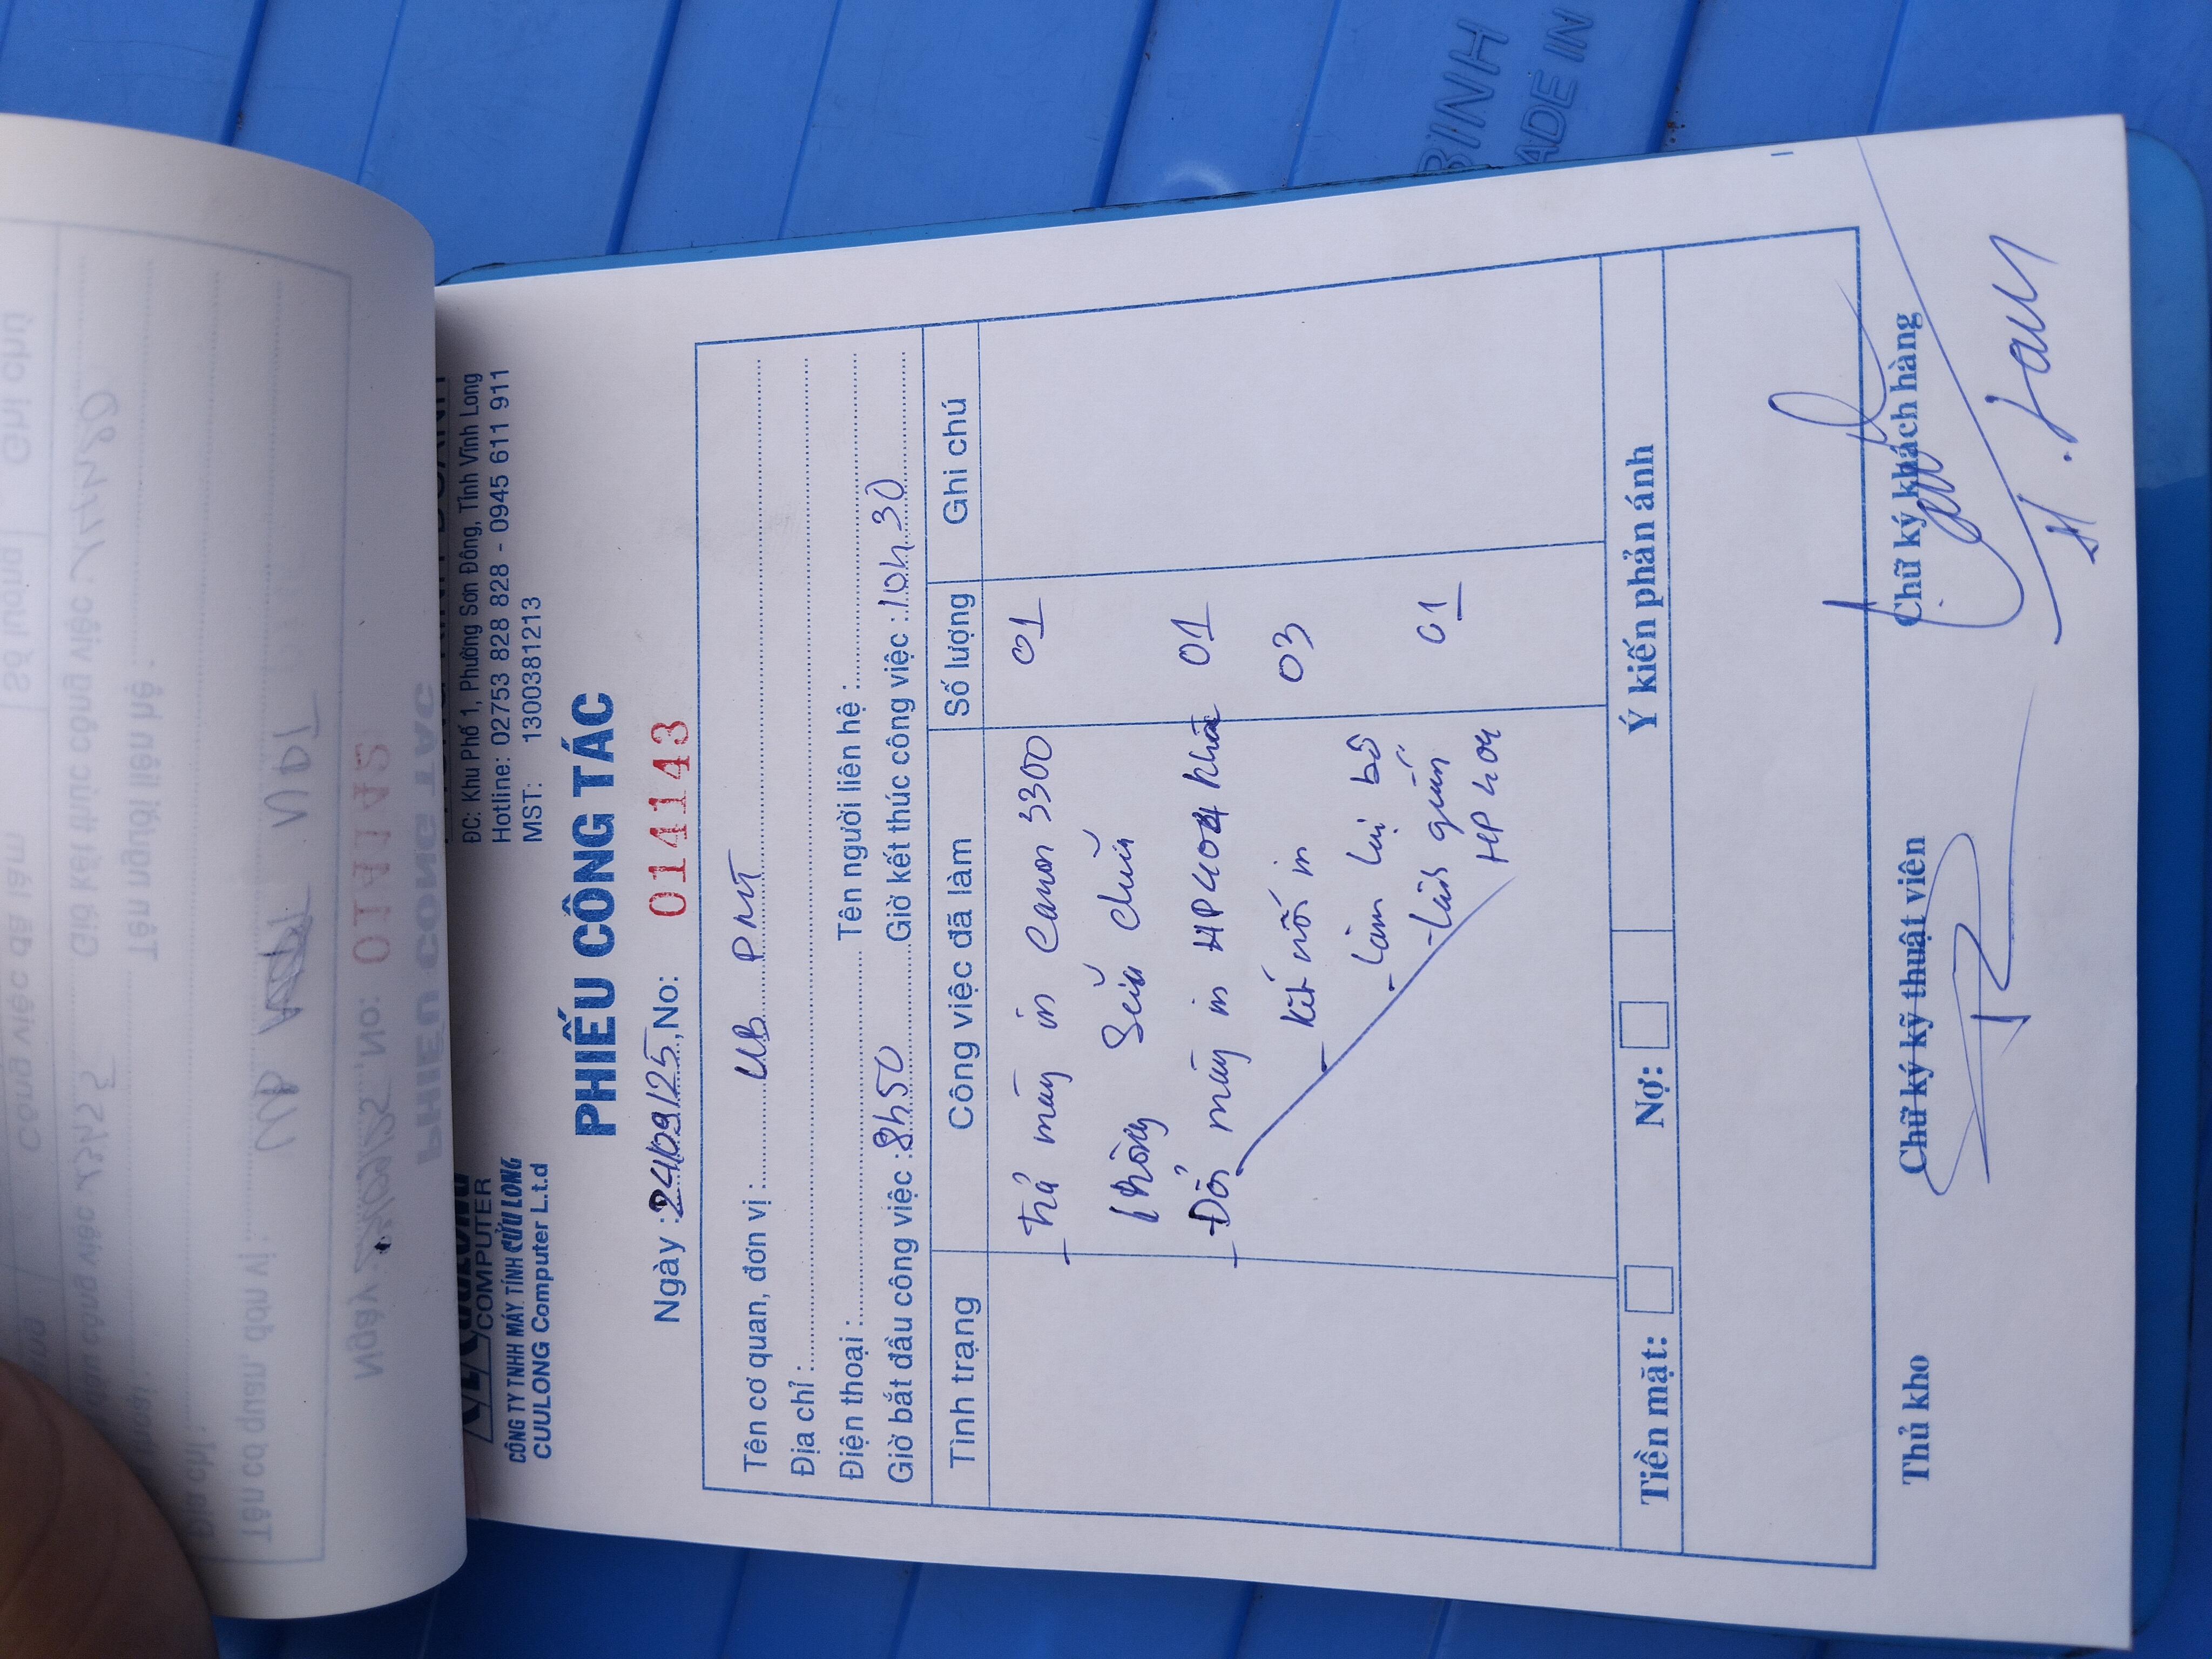 COMPUTER
CÔNG TY TNHH MÁY TÍNH CỬU LONG
CUULONG Computer L.t.d
ĐC: Khu Phố 1, Phường Sơn Đông, Tỉnh Vĩnh Long
Hotline: 02753 828 828 - 0945 611 911
MST: 1300381213
PHIẾU CÔNG TÁC
Ngày: 24/09/25, No: 014143
Tên cơ quan, đơn vị: UB PMT
Địa chỉ:
Điện thoại: Tên người liên hệ:
Giờ bắt đầu công việc: 8h50 Giờ kết thúc công việc: 10h30
Tình trạng Công việc đã làm Số lượng Ghi chú
- Trả máy in Canon 3300 01
không sửa chữa
- Đổi máy in HP 404 khác 01
- kết nối in 03
- Làm lại bộ
- Lấy giấy 01
HP 404
Tiền mặt: Nợ: Ý kiến phản ánh
Thủ kho Chữ ký kỹ thuật viên Chữ ký khách hàng
BINH
ADE IN